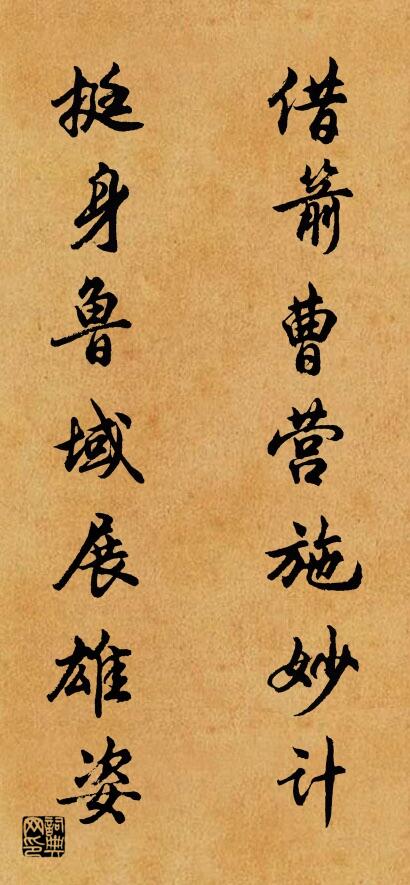 借箭曹营施妙计
挺身鲁域展雄姿
词典网印